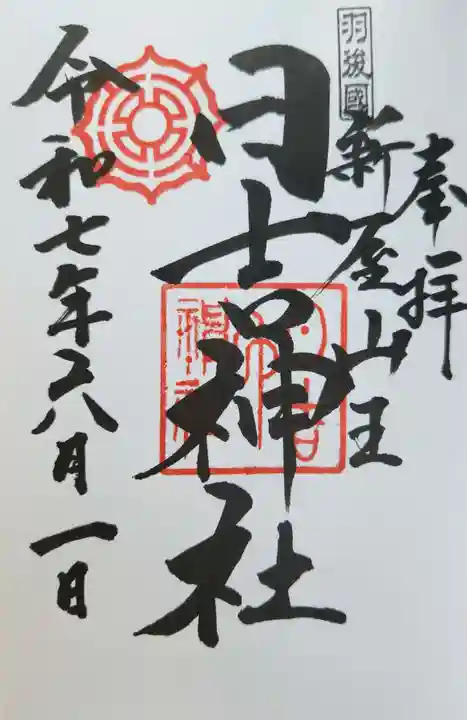 奉拝
羽後國
新屋山王
日吉神社
令和七年六月一日